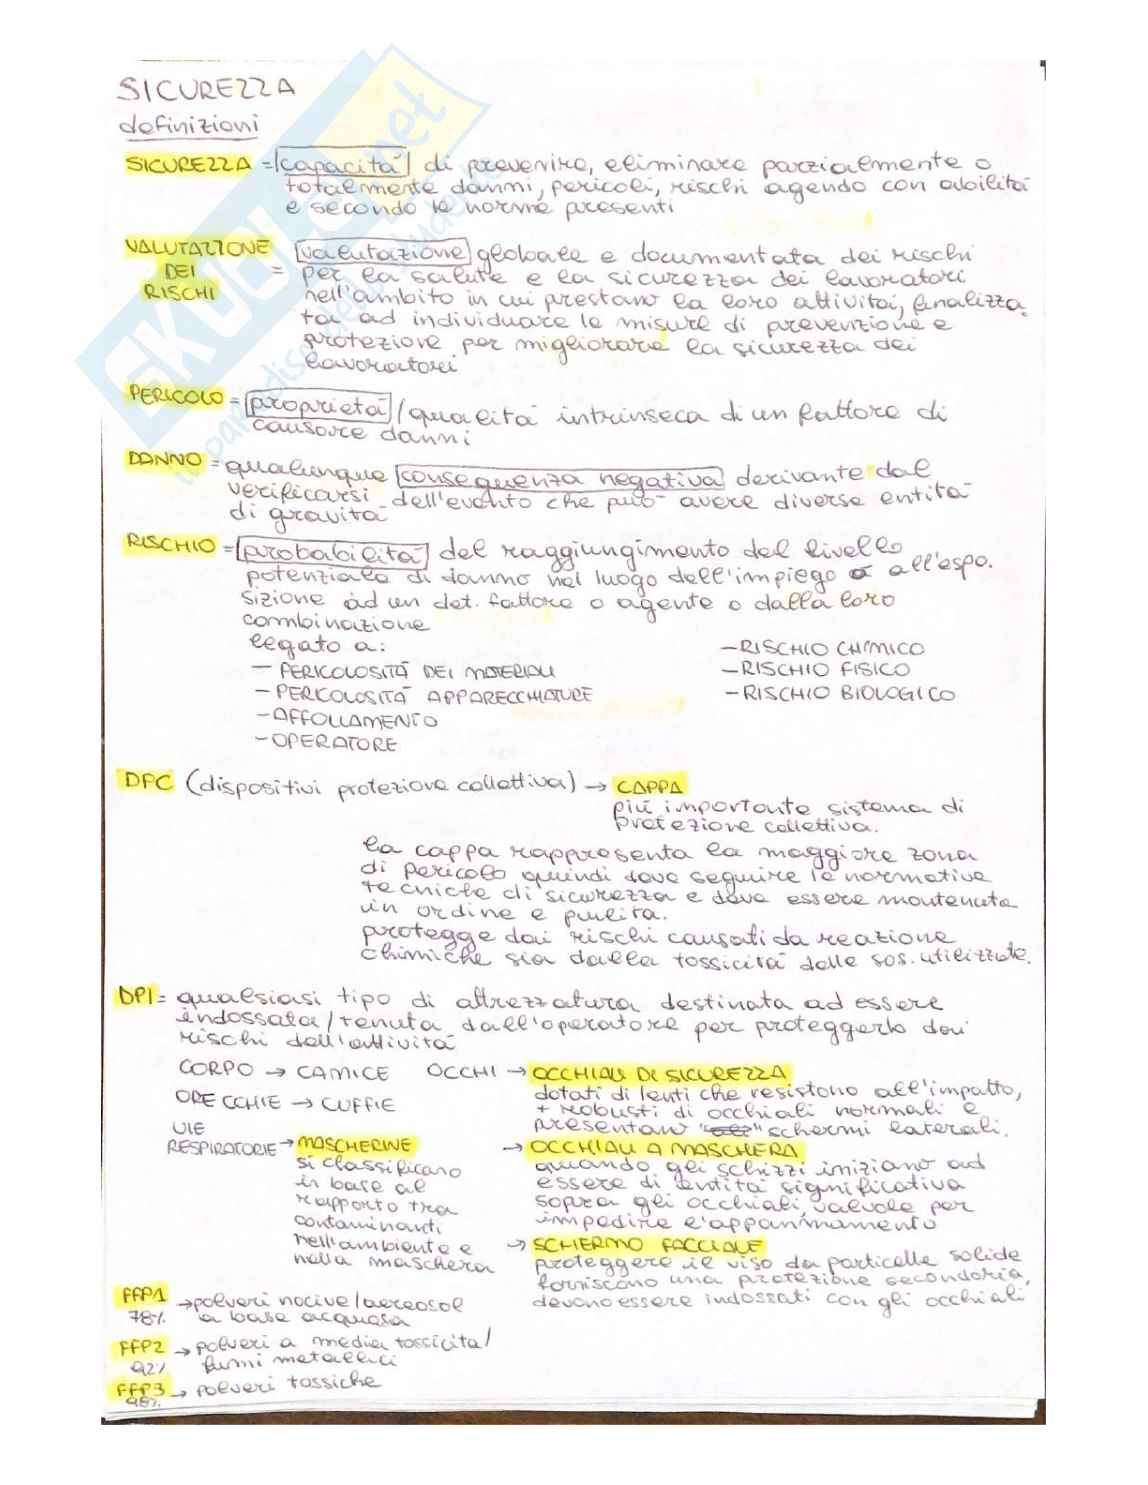 SICUREZZA
definizioni
SICUREZZA = capacità di prevenire, eliminare parzialmente o
totalmente danni, pericoli, rischi agendo con abilità
e secondo le norme presenti
VALUTAZIONE
DEI
RISCHI
= valutazione globale e documentata dei rischi
per la salute e la sicurezza dei lavoratori
nell'ambito in cui prestano la loro attività, finalizza-
ta ad individuare le misure di prevenzione e
protezione per migliorare la sicurezza dei
lavoratori
PERICOLO = proprietà / qualità intrinseca di un fattore di
causare danni
DANNO = qualunque conseguenza negativa derivante dal
verificarsi dell'evento che può avere diverse entità
di gravità
RISCHIO = probabilità del raggiungimento del livello
potenziale di danno nel luogo dell'impiego o all'espo.
sizione ad un det. fattore o agente o dalla loro
combinazione
legato a:
- PERICOLOSITÀ DEI MATERIALI
- PERICOLOSITÀ APPARECCHIATURE
- AFFOLLAMENTO
- OPERATORE
- RISCHIO CHIMICO
- RISCHIO FISICO
- RISCHIO BIOLOGICO
DPC (dispositivi protezione collettiva) → CAPPA
più importante sistema di
protezione collettiva.
la cappa rappresenta la maggiore zona
di pericolo quindi deve seguire le normative
tecniche di sicurezza e deve essere mantenuta
in ordine e pulita.
protegge dai rischi causati da reazione
chimiche sia dalla tossicità delle sos. utilizzate.
DPI = qualsiasi tipo di attrezzatura destinata ad essere
indossata/tenuta dall'operatore per proteggerlo dai
rischi dell'attività
CORPO → CAMICE
ORECCHIE → CUFFIE
VIE
RESPIRATORIE → MASCHERINE
si classificano
in base al
rapporto tra
contaminanti
nell'ambiente e
nella maschera
OCCHI → OCCHIALI DI SICUREZZA
dotati di lenti che resistono all'impatto,
+ robusti di occhiali normali e
presentano schermi laterali.
→ OCCHIALI A MASCHERA
quando gli schizzi iniziano ad
essere di entità significativa
sopra gli occhiali, valvole per
impedire l'appannamento
→ SCHERMO FACCIALE
proteggere il viso da particelle solide
forniscono una protezione secondaria,
devono essere indossati con gli occhiali
FFP1 → polveri nocive/aereosol
78% a base acquosa
FFP2 → polveri a media tossicità/
92% fumi metallici
FFP3 → polveri tossiche
98%
SKUOLA.net